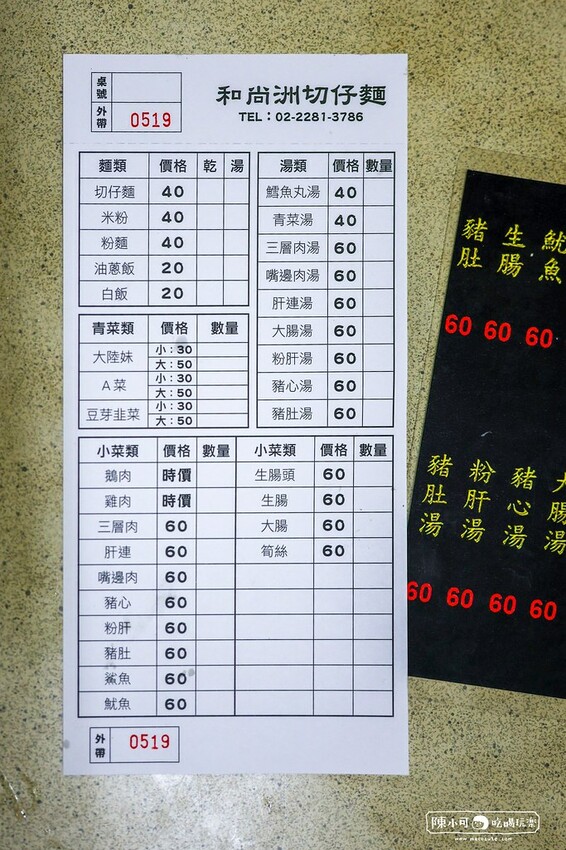 桌號
外帶 0519
和尚洲切仔麵
TEL：02-2281-3786
麵類 價格 乾 湯
切仔麵 40
米粉 40
粉麵 40
油蔥飯 20
白飯 20
青菜類 價格 數量
大陸妹 小：30
大：50
A菜 小：30
大：50
豆芽韭菜 小：30
大：50
湯類 價格 數量
鱈魚丸湯 40
青菜湯 40
三層肉湯 60
嘴邊肉湯 60
肝連湯 60
大腸湯 60
粉肝湯 60
豬心湯 60
豬肚湯 60
小菜類 價格 數量 小菜類 價格 數量
鵝肉 時價 生腸頭 60
雞肉 時價 生腸 60
三層肉 60 大腸 60
肝連 60 筍絲 60
嘴邊肉 60
豬心 60
粉肝 60
豬肚 60
鯊魚 60
魷魚 60
外帶 0519
豬肚 生腸 魷魚
60 60 60
豬肚湯 粉肝湯 豬心湯 大腸湯
60 60 60 60
陳小可 吃喝玩樂